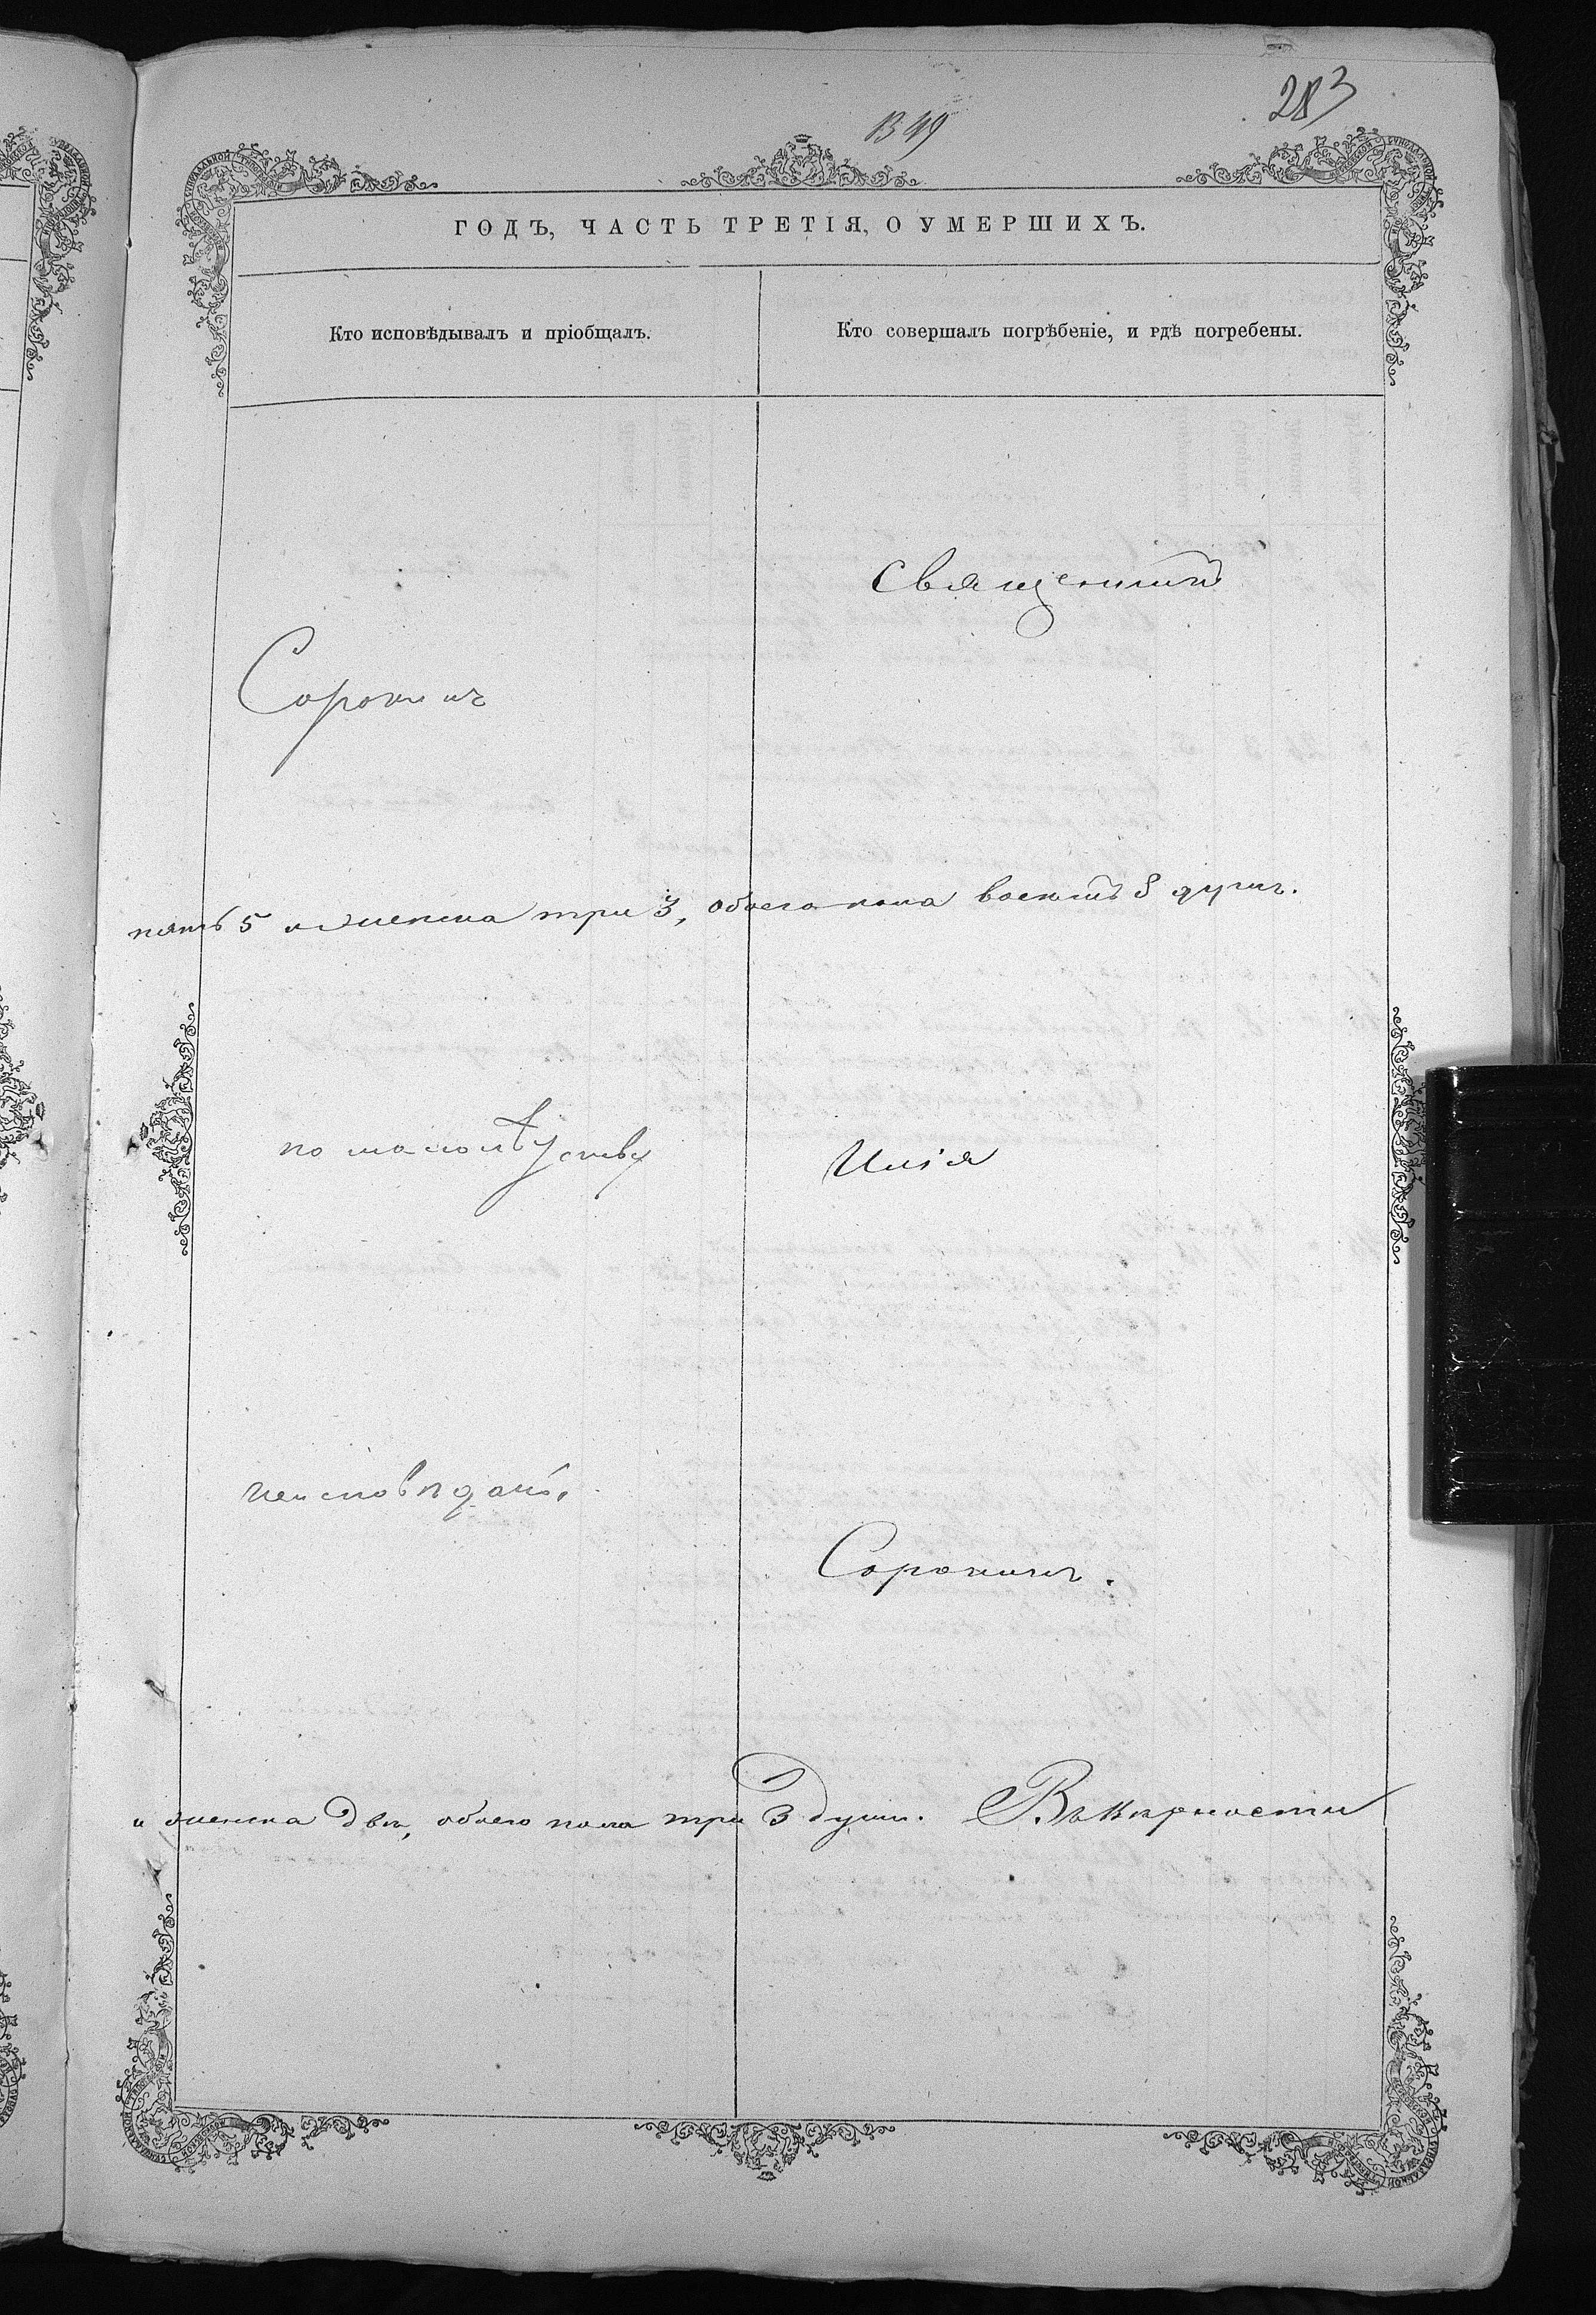 283
1349
ГОДЪ, ЧАСТЬ ТРЕТІЯ, О УМЕРШИХЪ.
Кто исповѣдывалъ и пріобщалъ.
Кто совершалъ погрѣбеніе, и гдѣ погребены.
Священникъ
Сорокинъ
пять 5 и женска три 3, обоего пола восемь 8 душъ.
по малолѣтству
Илія
неисповѣданъ.
Сорокинъ.
и женска двѣ, обоего пола три 3 души. Въ вѣрности